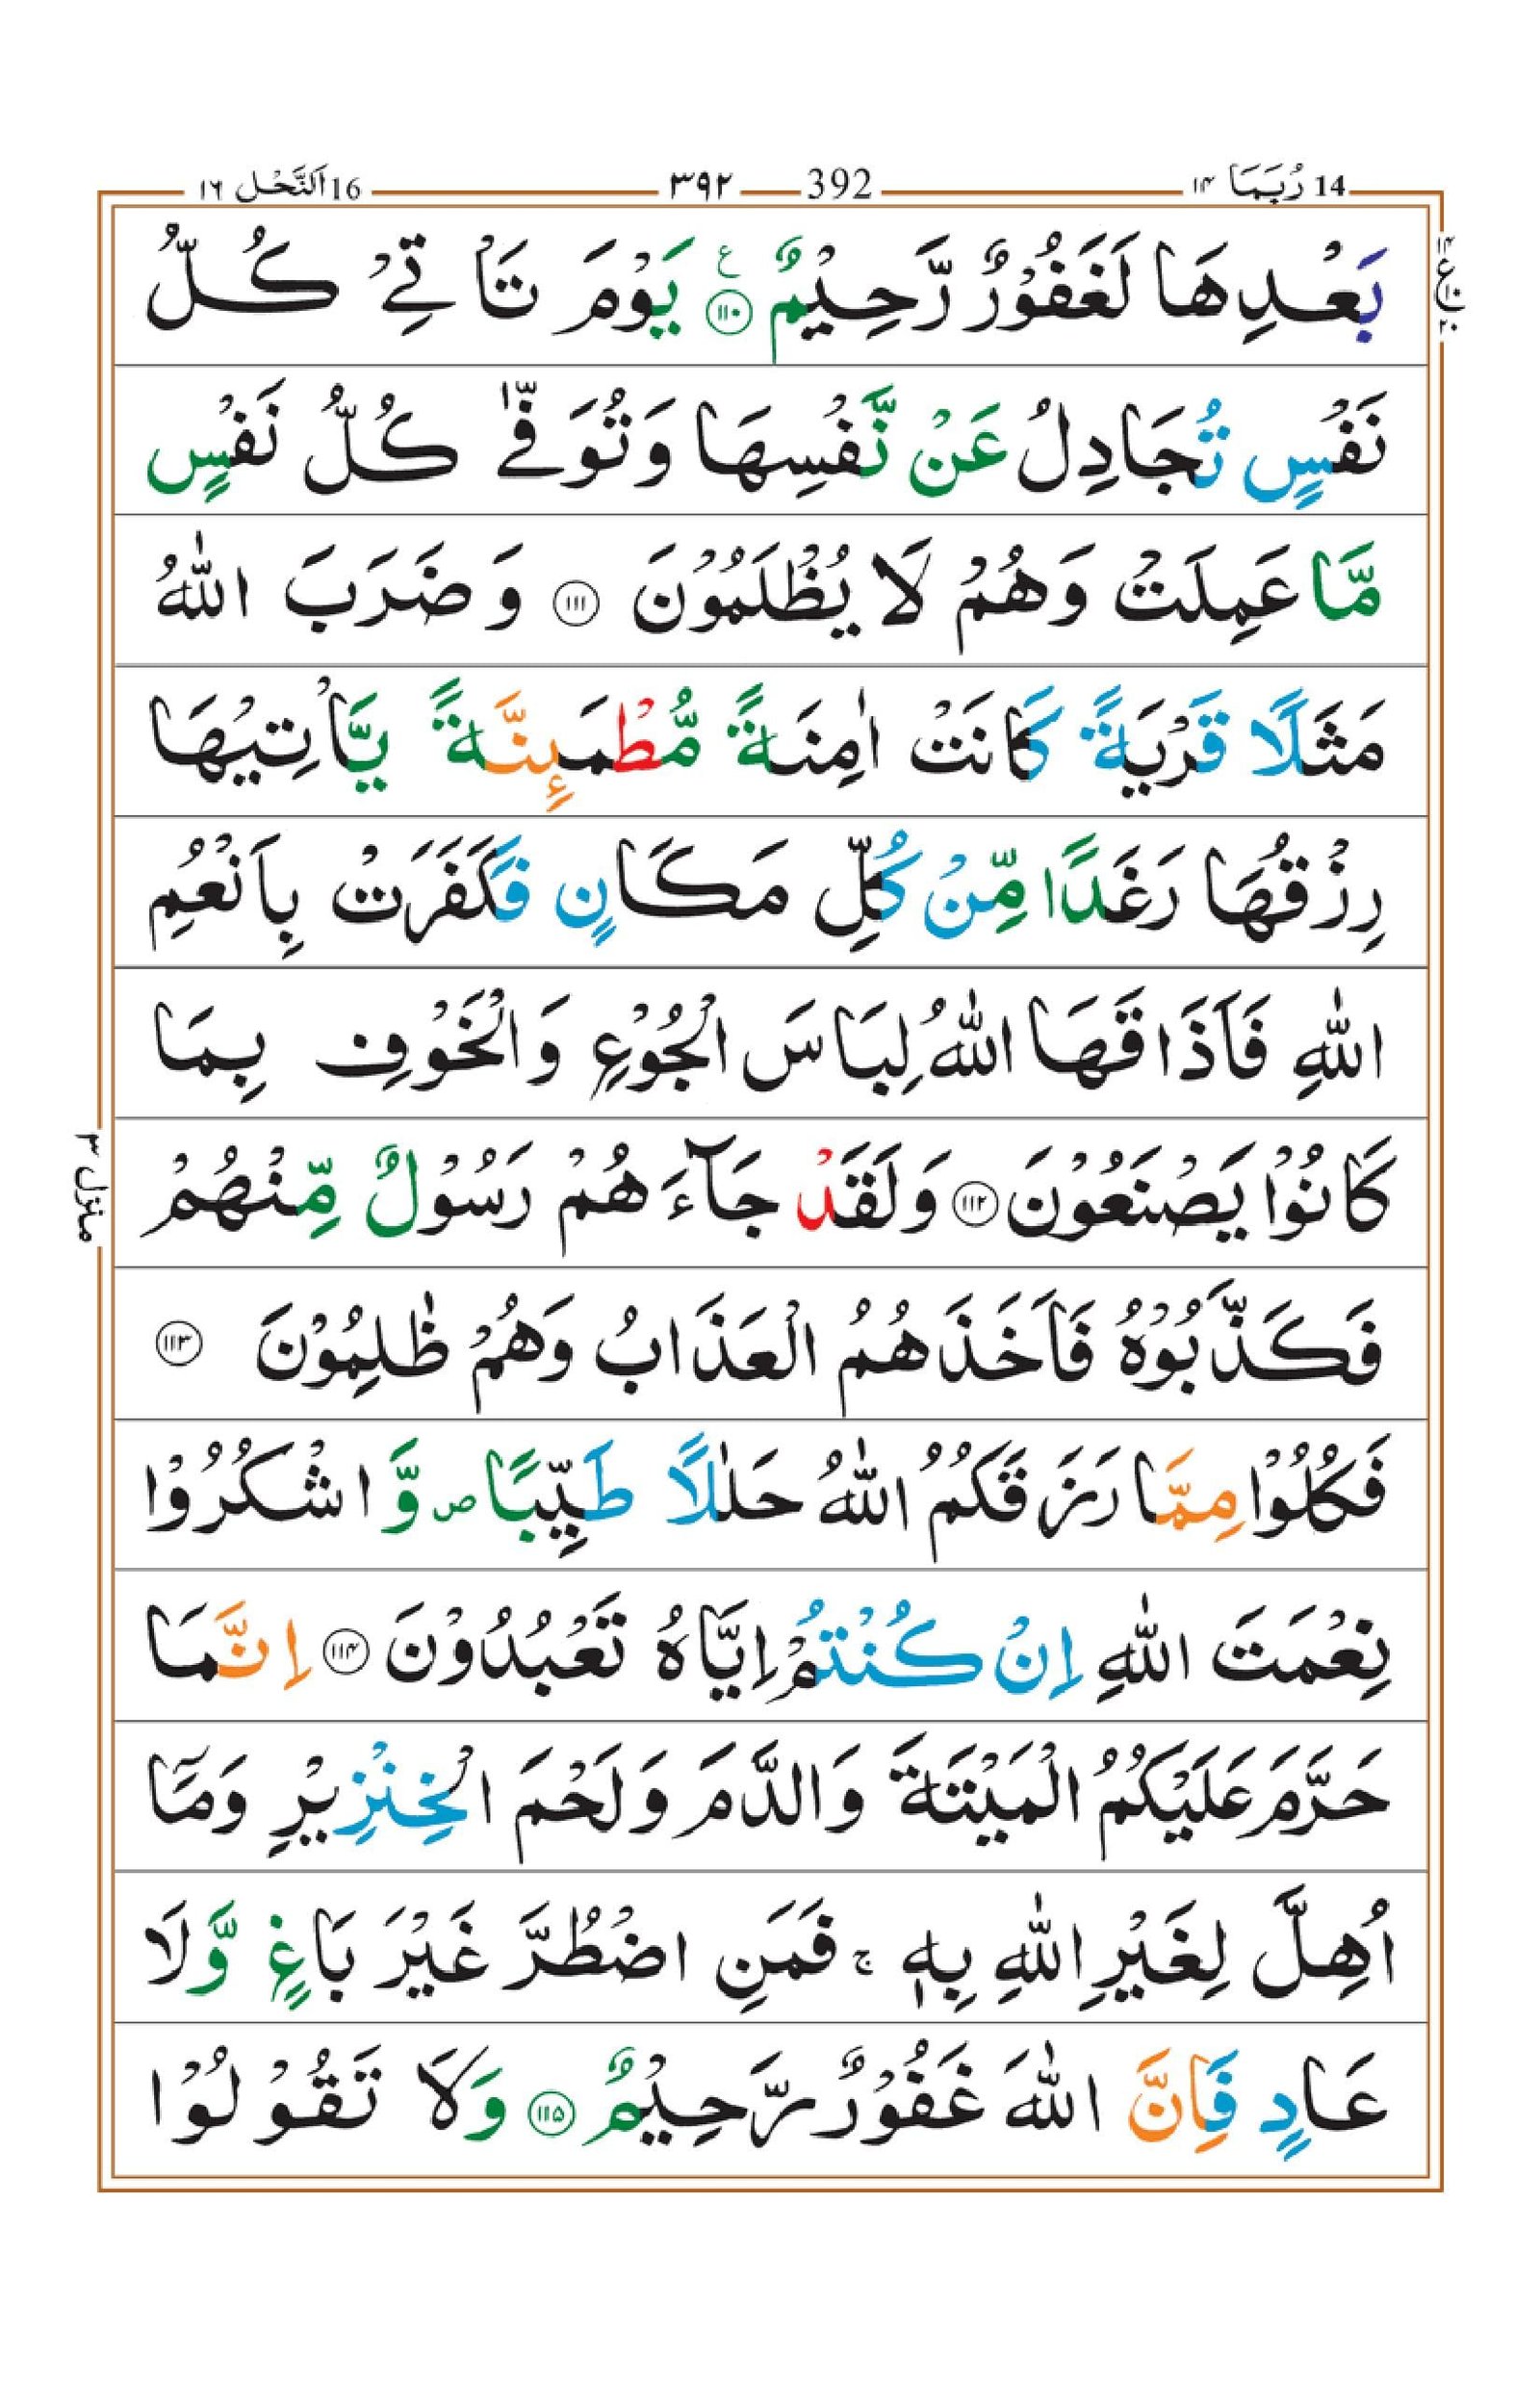 14 رُبَمَا ۱۴ 392 ۳۹۲ 16 اَلنَّحْل ۱۶
بَعْدِهَا لَغَفُوْرٌ رَّحِيْمٌ ﴿۱۱۰﴾ ع يَوْمَ تَاْتِيْ كُلُّ
۱۴ ع ۱۰ ۲۰
نَفْسٍ تُجَادِلُ عَنْ نَّفْسِهَا وَتُوَفّٰي كُلُّ نَفْسٍ
مَّا عَمِلَتْ وَهُمْ لَا يُظْلَمُوْنَ ﴿۱۱۱﴾ وَضَرَبَ اللّٰهُ
مَثَلًا قَرْيَةً كَانَتْ اٰمِنَةً مُّطْمَىِٕنَّةً يَّاْتِيْهَا
رِزْقُهَا رَغَدًا مِّنْ كُلِّ مَكَانٍ فَكَفَرَتْ بِاَنْعُمِ
اللّٰهِ فَاَذَاقَهَا اللّٰهُ لِبَاسَ الْجُوْعِ وَالْخَوْفِ بِمَا
كَانُوْا يَصْنَعُوْنَ ﴿۱۱۲﴾ وَلَقَدْ جَآءَهُمْ رَسُوْلٌ مِّنْهُمْ
منزل ۳
فَكَذَّبُوْهُ فَاَخَذَهُمُ الْعَذَابُ وَهُمْ ظٰلِمُوْنَ ﴿۱۱۳﴾
فَكُلُوْا مِمَّا رَزَقَكُمُ اللّٰهُ حَلٰلًا طَيِّبًا ص وَّاشْكُرُوْا
نِعْمَتَ اللّٰهِ اِنْ كُنْتُمْ اِيَّاهُ تَعْبُدُوْنَ ﴿۱۱۴﴾ اِنَّمَا
حَرَّمَ عَلَيْكُمُ الْمَيْتَةَ وَالدَّمَ وَلَحْمَ الْخِنْزِيْرِ وَمَآ
اُهِلَّ لِغَيْرِ اللّٰهِ بِهٖ ج فَمَنِ اضْطُرَّ غَيْرَ بَاغٍ وَّلَا
عَادٍ فَاِنَّ اللّٰهَ غَفُوْرٌ رَّحِيْمٌ ﴿۱۱۵﴾ وَلَا تَقُوْلُوْا